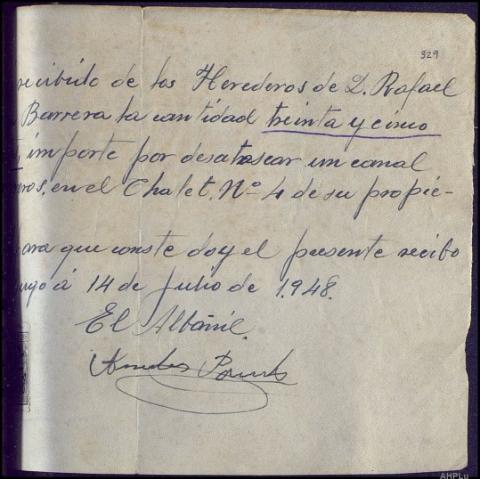 329
recibido de los Herederos de D. Rafael
Barrera la cantidad treinta y cinco
importe por desatrascar un canal
en el Chalet. Nº 4 de su propie-
ara que conste doy el presente recibo
a 14 de Julio de 1.948.
El Albañil.
AHPLu